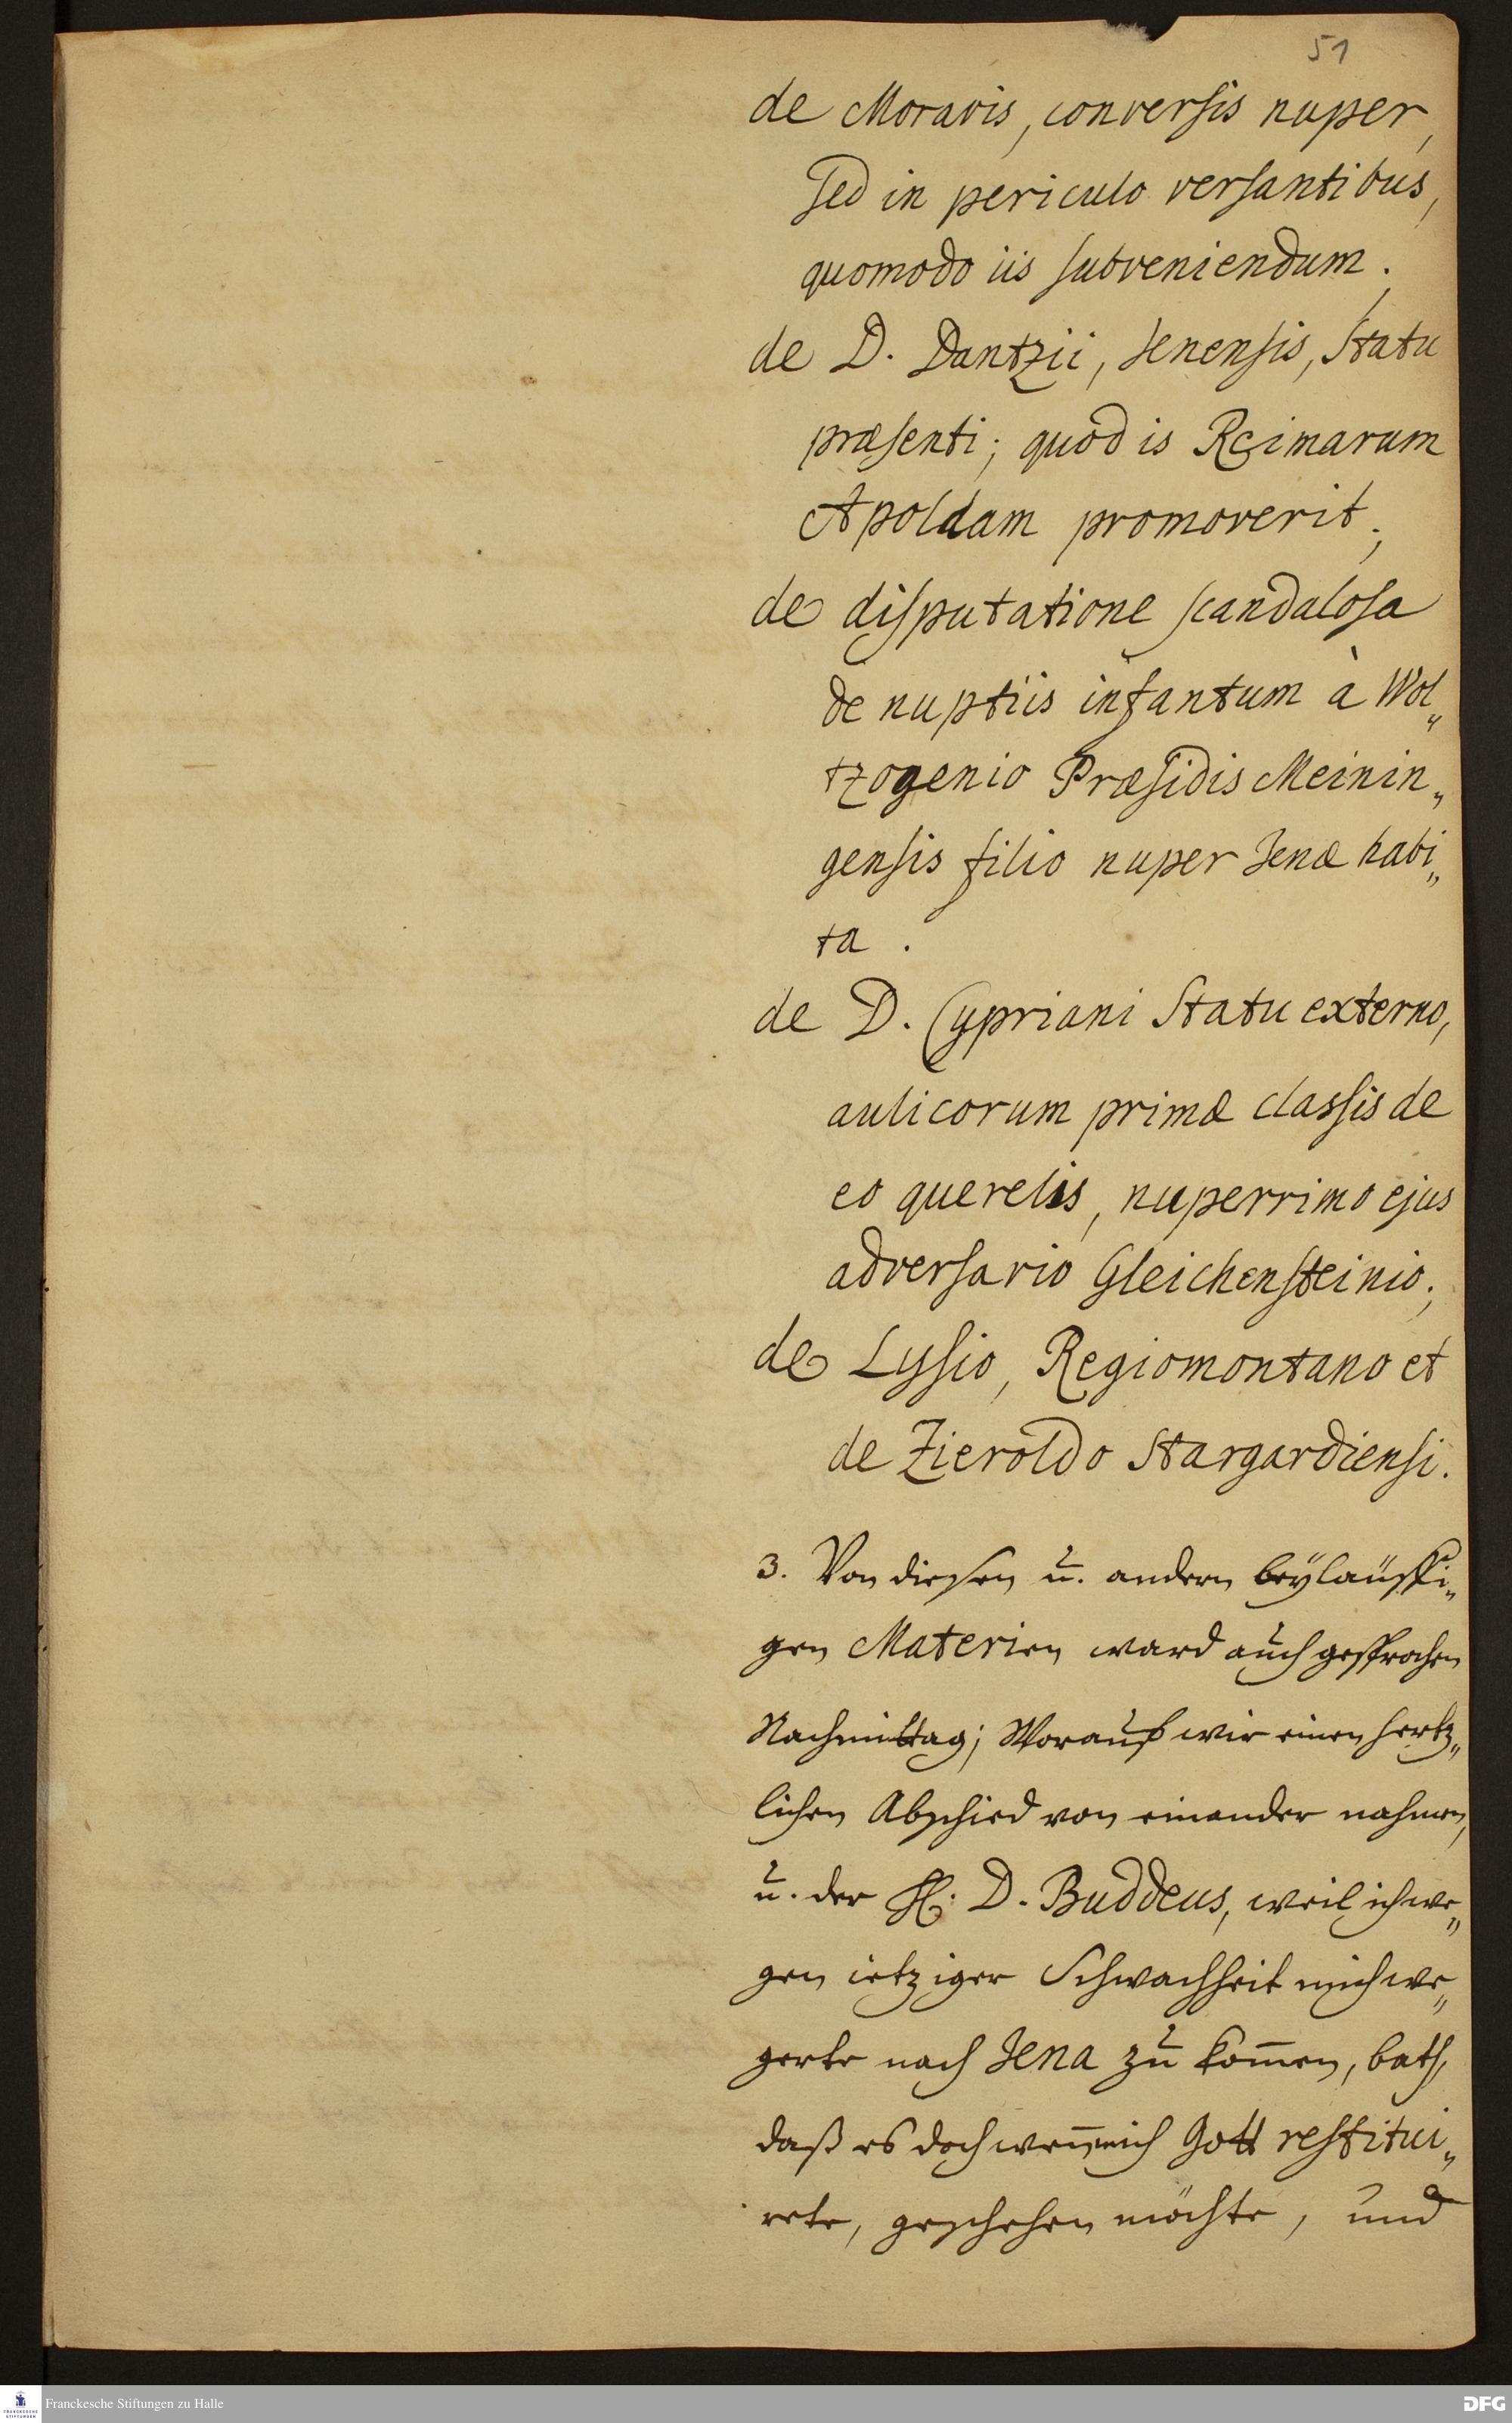 51
de Moravis, conversis nuper,
sed in periculo versantibus,
quomodo iis subveniendum.
de D. Dantzii, Jenensis, Statu
præsenti; quod is Reimarum
Apoldam promoverit;
de disputatione scandalosa
de nuptiis infantum à Wol„
tzogenio Præsidis Meinin„
gensis filio nuper Jenæ habi„
ta.
de D. Cypriani Statu externo,
aulicorum primæ classis de
eo querelis, nuperrimo ejus
adversario Gleichensteinio;
de Lysio, Regiomontano et
de Zieroldo Stargardiensi.
3. Von diesen u. andern beyläuffi„
gen Materien ward auch gesprochen
Nachmittag; Worauf wir einen hertz„
lichen Abschied von einander nahmen,
u. der H. D. Buddeus, weil ich we„
gen ietziger Schwachheit mich we„
gerte nach Jena zu kom̄en, bath,
daß es doch wen̄ mich Gott restitui„
rete, geschehen möchte, und
Franckesche Stiftungen zu Halle
DFG